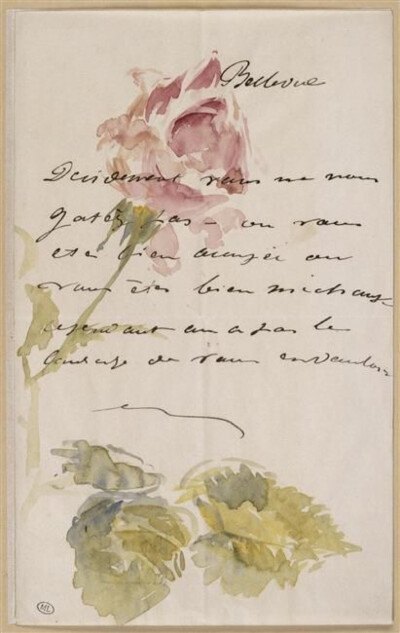 Bellevue
Decidement vous ne nous
gatez pas – ou vous
etes bien occupée ou
vous êtes bien méchante
cependant on a pas le
courage de vous en vouloir
ML